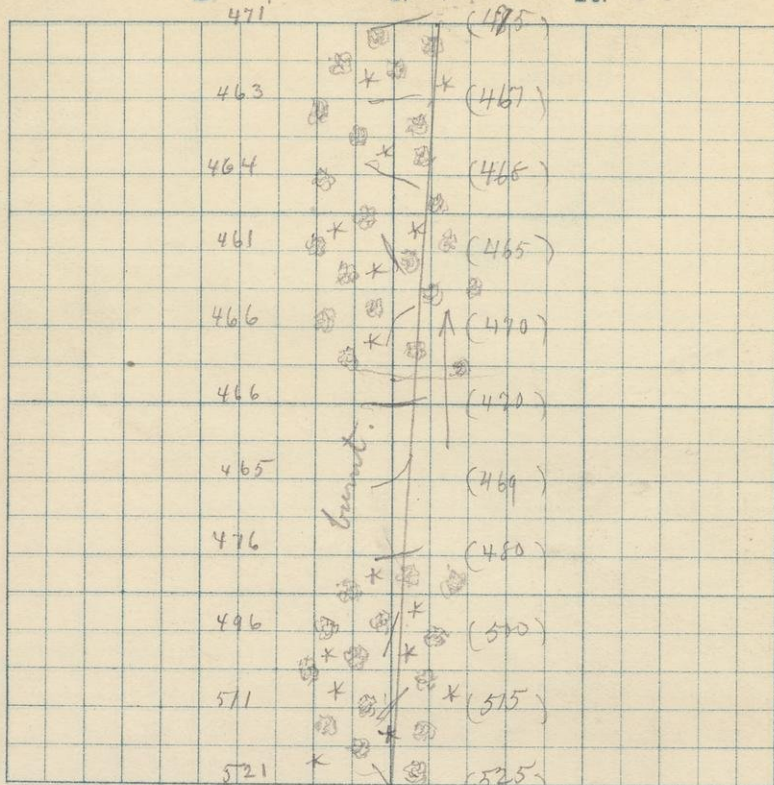 471 (475)
463 (467)
464 (468)
461 (465)
466 (470)
466 (470)
burnt.
465 (469)
476 (480)
496 (500)
511 (515)
521 (525)